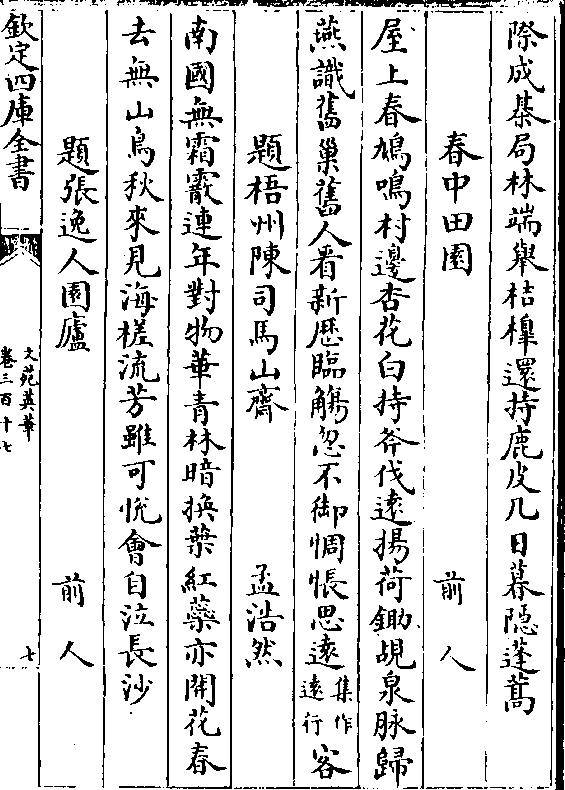 際成棊局林端舉桔橰還持鹿皮几日暮隱蓬蒿
春中田園 前人
屋上春鳩鳴村邊杏花白持斧伐遠揚荷鋤覘泉脉歸
燕識舊巢舊人看新歴臨觴忽不御惆悵思遠集作遠行客
題梧州陳司馬山齋 孟浩然
南國無霜霰連年對物華青林暗換葉紅蘂亦開花春
去無山鳥秋來見海槎流芳雖可悅會自泣長沙
題張逸人園廬 前人
欽定四庫全書
文苑英華
卷三百十七
七